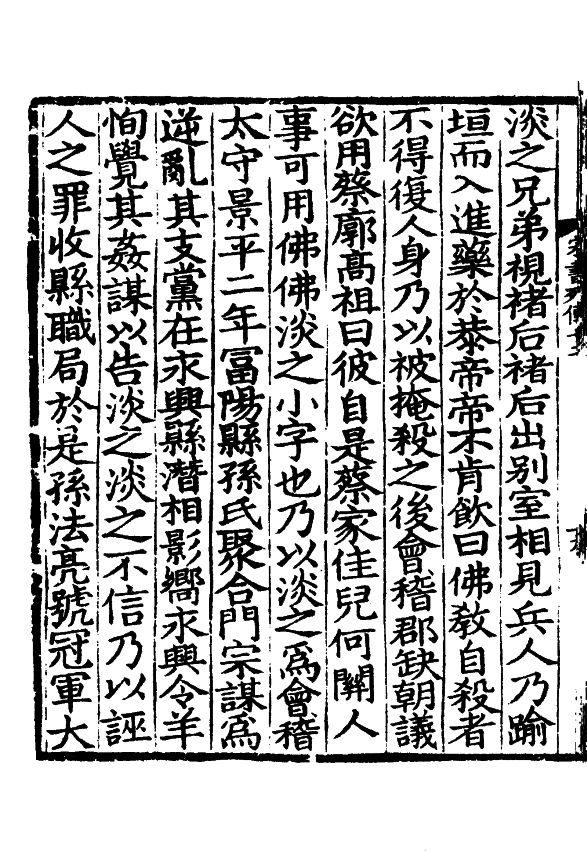 淡之兄弟視褚后褚后出别室相見兵人乃踰
垣而入進藥於恭帝帝不肯飲曰佛教自殺者
不得復人身乃以被掩殺之後會稽郡缺朝議
欲用蔡廓髙祖曰彼自是蔡家佳兒何關人
事可用佛佛淡之小字也乃以淡之爲會稽
太守景平二年冨陽縣孫氏聚合門宗謀爲
逆亂其支黨在永興縣潛相影嚮永興令羊
恂覺其姦謀以告淡之淡之不信乃以誣
人之罪收縣職局於是孫法亮號冠軍大